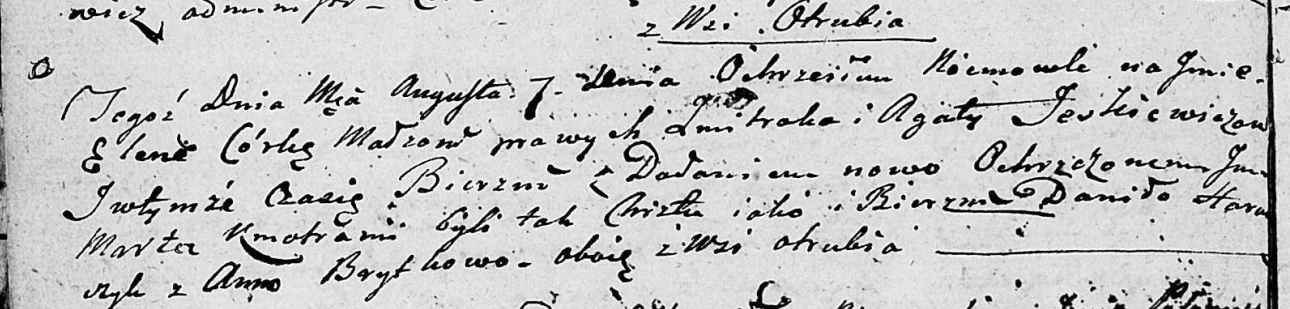 wicz administr
z Wsi Otrubia
Tegoż Dnia Mca Augusta 7. dnia Ochrzciłem Niemowle na Jmie
Elene Córkę Małżonk prawych Dmitraka i Agaty Jeskiewiczow
J wtymże Czasie Bierzm z Dodaniem nowo Ochrzczonemu Jm
Marta Kmotrami byli tak Chrztu iako i Bierzm Daniło Hara
czyk z Anno Brytkowo oboie z Wsi otrubia